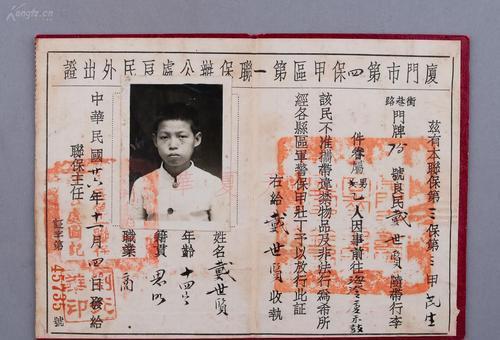 廈門市第四保甲區第一聯保辦公處良民外出證
茲有本聯保第三保第三甲民生
街巷路門牌75號良民戴世賢隨帶行李
件眷屬男女乙人因事前往
該民不准攜帶違禁物品及非法行為希所
經各縣區軍警保甲壯丁予以放行此證
右給戴世賢收執
姓名戴世賢
年齡十四
籍貫思明
職業商
中華民國廿六年十二月四日發給
聯保主任
証字第45735號